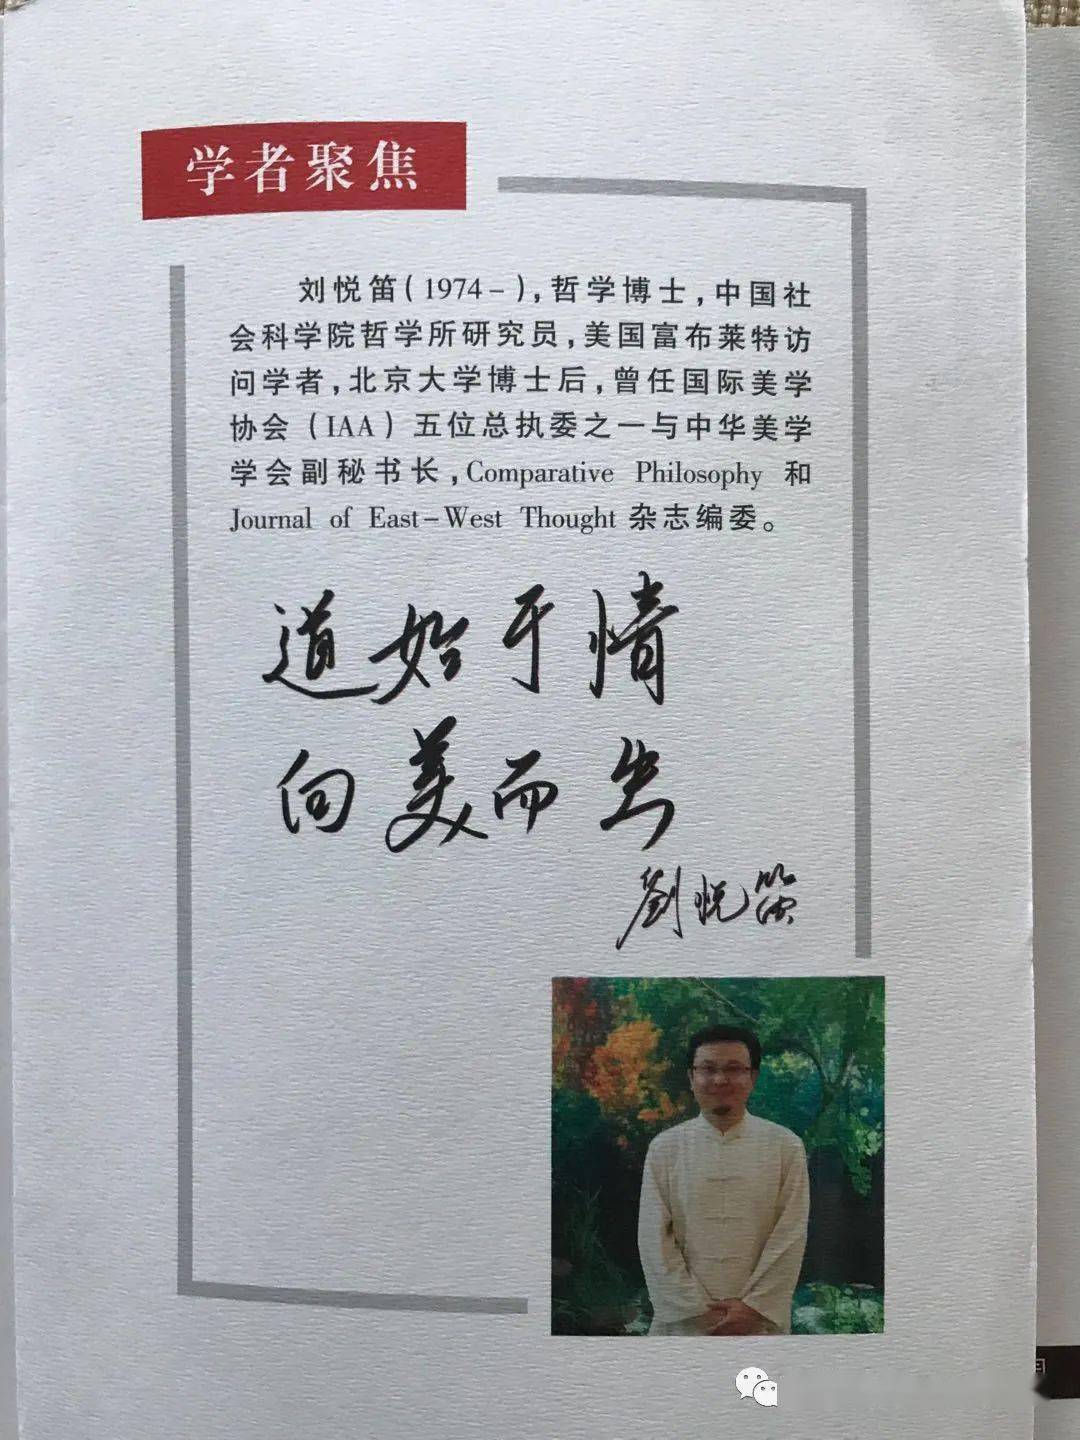 学者聚焦
刘悦笛(1974-),哲学博士,中国社
会科学院哲学所研究员,美国富布莱特访
问学者,北京大学博士后,曾任国际美学
协会(IAA)五位总执委之一与中华美学
学会副秘书长,Comparative Philosophy 和
Journal of East-West Thought 杂志编委。
道始于情
向美而生
劉悦笛